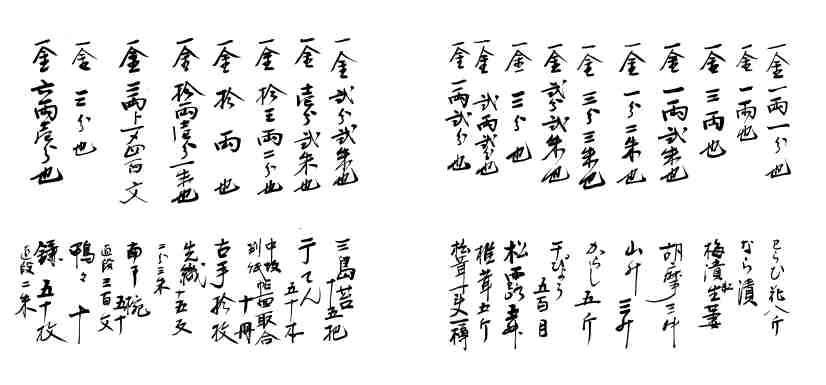 一金 一両一分也 八斤
一金 一両也 なら漬
一金 三両也 梅漬生姜
一金 一両弐朱也 胡摩三升
一金 一分二朱也 山升 三升
一金 三分三朱也 からし 五斤
一金 弐分弐朱也 干ぴょう 五百目
一金 三分也 松露
一金 弐両弐分也 椎茸五斤
一金 一両弐分也 松茸 樽
一金 弐分弐朱也 三島苔 十五把
一金 壱分弐朱也 てん 五十本
一金 拾五両二分也 取合 十冊
一金 拾両也 古手拾枚
一金 拾両壱分一朱也 先織 十五反 二分三朱
一金 三両ト一〆四百文 南部椀 五十 直段三百文
一金 三分也 鴨 十
一金 六両壱分也 鎌五十枚 直段二朱